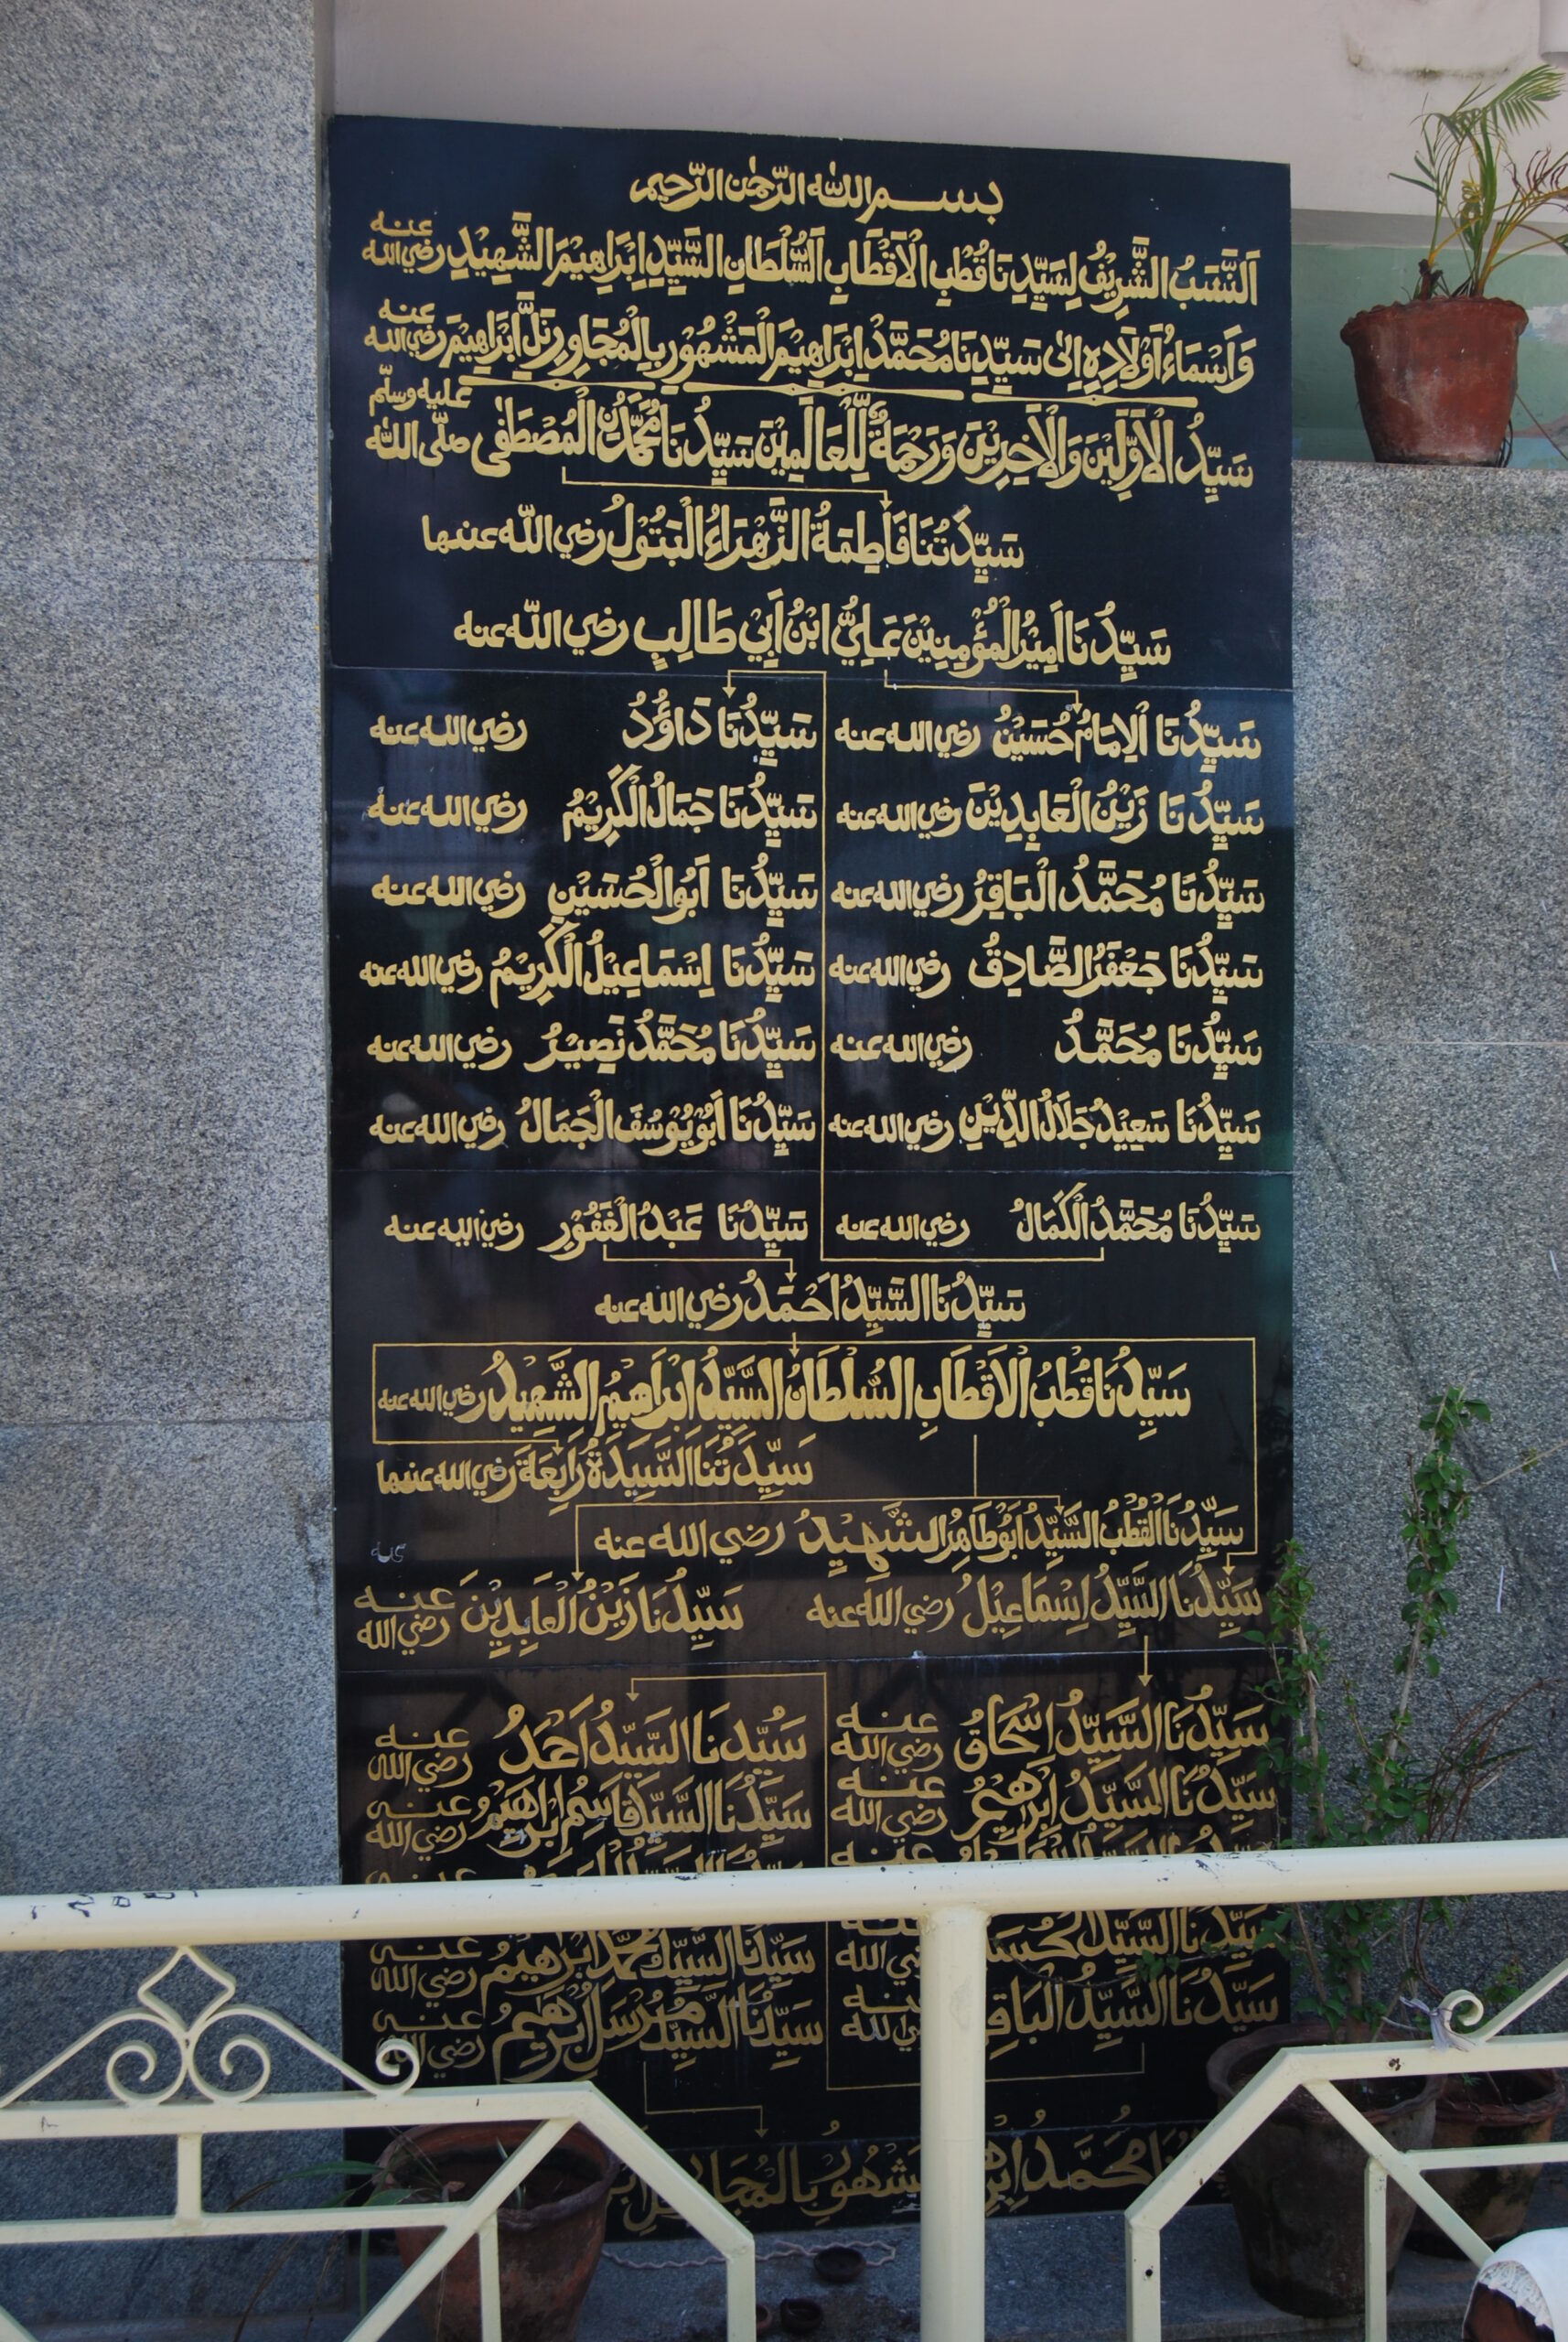 بسم الله الرحمن الرحيم
اَلنَّسَبُ الشَّرِيْفُ لِسَيِّدِنَا قُطْبِ الْاَقْطَابِ اَلسُّلْطَانِ السَّيِّدِ اِبْرَاهِيْمَ الشَّهِيْدِ رضي الله عنه
وَاَسْمَاءُ اَوْلَادِهٖ اِلٰى سَيِّدِنَا مُحَمَّدْ اِبْرَاهِيْمَ الْمَشْهُوْرِ بِالْمُجَاوِرِ نَلَّ اِبْرَاهِيْمَ رضي الله عنه
سَيِّدُ الْاَوَّلِيْنَ وَالْاٰخِرِيْنَ وَرَحْمَةٌ لِّلْعَالَمِيْنَ سَيِّدُنَا مُحَمَّدُنِ الْمُصْطَفٰى صلى الله عليه وسلم
سَيِّدَتُنَا فَاطِمَةُ الزَّهْرَاءُ الْبَتُوْلُ رضي الله عنها
سَيِّدُنَا اَمِيْرُ الْمُؤْمِنِيْنَ عَلِيُّ ابْنُ اَبِيْ طَالِبٍ رضي الله عنه
سَيِّدُنَا اَلْاِمَامُ حُسَيْنُ رضي الله عنه سَيِّدُنَا دَاؤُدُ رضي الله عنه
سَيِّدُنَا زَيْنُ الْعَابِدِيْنَ رضي الله عنه سَيِّدُنَا جَمَالُ الْكَرِيْمُ رضي الله عنه
سَيِّدُنَا مُحَمَّدُ الْبَاقِرُ رضي الله عنه سَيِّدُنَا اَبُو الْحُسَيْنِ رضي الله عنه
سَيِّدُنَا جَعْفَرُ الصَّادِقُ رضي الله عنه سَيِّدُنَا اِسْمَاعِيْلُ الْكَرِيْمُ رضي الله عنه
سَيِّدُنَا مُحَمَّدُ رضي الله عنه سَيِّدُنَا مُحَمَّدُ نَصِيْرُ رضي الله عنه
سَيِّدُنَا سَعِيْدُ جَلَالُ الدِّيْنِ رضي الله عنه سَيِّدُنَا اَبُوْ يُوْسُفَ الْجَمَالُ رضي الله عنه
سَيِّدُنَا مُحَمَّدُ الْكَمَالُ رضي الله عنه سَيِّدُنَا عَبْدُ الْغَفُوْرِ رضي الله عنه
سَيِّدُنَا السَّيِّدُ اَحْمَدُ رضي الله عنه
سَيِّدُنَا قُطْبُ الْاَقْطَابِ السُّلْطَانُ السَّيِّدُ اِبْرَاهِيْمُ الشَّهِيْدُ رضي الله عنه
سَيِّدَتُنَا السَّيِّدَةُ رَابِعَةَ رضي الله عنها
سَيِّدُنَا الْقُطْبُ السَّيِّدُ اَبُوْ طَاهِرُ الشَّهِيْدُ رضي الله عنه
سَيِّدُنَا السَّيِّدُ اِسْمَاعِيْلُ رضي الله عنه سَيِّدُنَا زَيْنُ الْعَابِدِيْنَ رضي الله عنه
سَيِّدُنَا السَّيِّدُ اِسْحَاقُ رضي الله عنه سَيِّدُنَا السَّيِّدُ اَحْمَدُ رضي الله عنه
سَيِّدُنَا السَّيِّدُ اِبْرٰهِيْمُ رضي الله عنه سَيِّدُنَا السَّيِّدُ قَاسِمُ اِبْرَاهِيْمُ رضي الله عنه
سَيِّدُنَا السَّيِّدُ سَيِّدُنَا السَّيِّدُ مُحَمَّدْ اِبْرٰهِيْمُ رضي الله عنه
سَيِّدُنَا السَّيِّدُ الْبَاقِرُ سَيِّدُنَا السَّيِّدُ مُرْسَلْ اِبْرٰهِيْمُ رضي الله عنه
مُحَمَّدْ